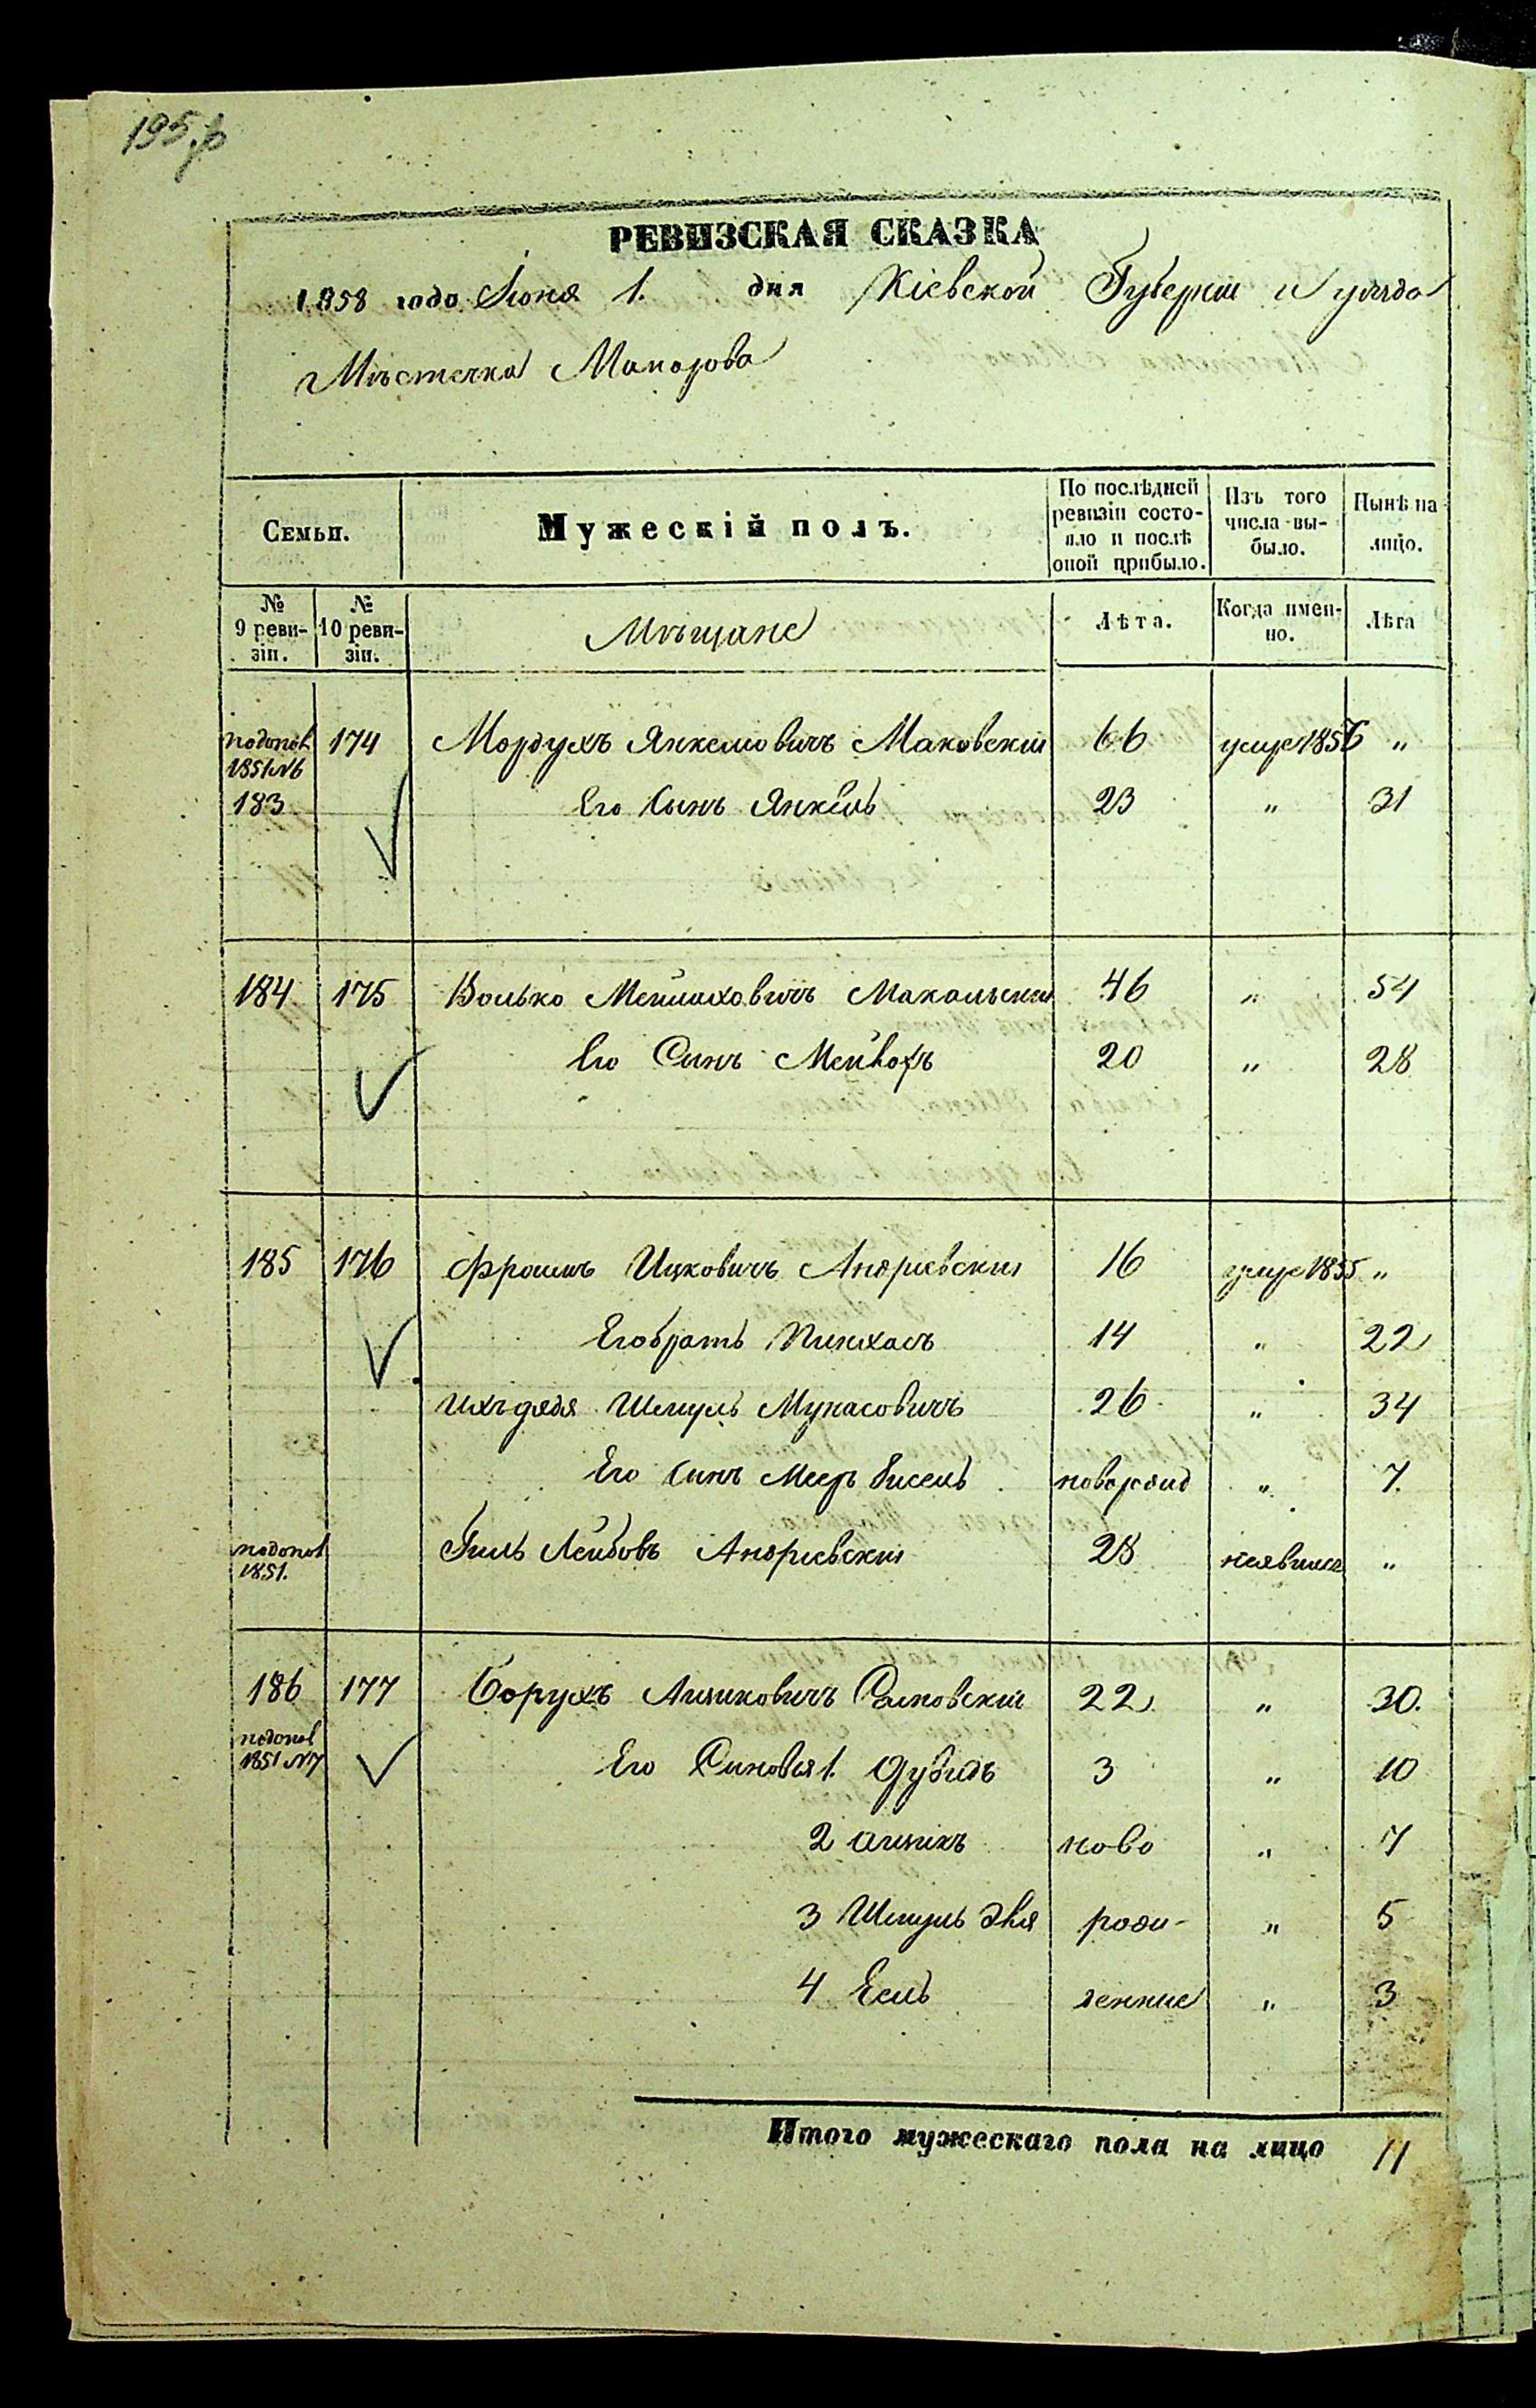 РЕВИЗСКАЯ СКАЗКА
1858 года Іюня 1. дня Кіевской Губерніи и уѣзда
Мѣстечка Макарова
Семьи. Мужескій полъ. По послѣдней ревизіи состояло и послѣ оной прибыло. Изъ того числа выбыло. Нынѣ на лицо.
№ 9 ревизіи. № 10 ревизіи. Мѣщане Лѣта. Когда именно. Лѣта
подопол 1851 №6 174 Мордухъ Янкелювичъ Маковскій 66 умре 1856 "
183 Его Сынъ Янкель 23 " 31
184 175 Волько Мейлаховичъ Макальскій 46 " 54
Его Сынъ 20 " 28
185 176 Фроимъ Ицковичъ Андріевскій 16 умре 1855 "
Его братъ Пинхасъ 14 " 22
Ихъ дядя Шмуль 26 " 34
Его Сынъ Меер новорожд " 7.
подопол 1851. Гиль Лейбовъ Андріевскій 28 неявился "
186 177 Борухъ Айзиковичъ 22 " 30.
подопол 1851 №7 Его Синовья 1. Дувидъ 3 " 10
2 Айзикъ ново " 7
3 Шмуль роži- " 5
4 Есль денние " 3
Итого мужескаго пола на лицо 11